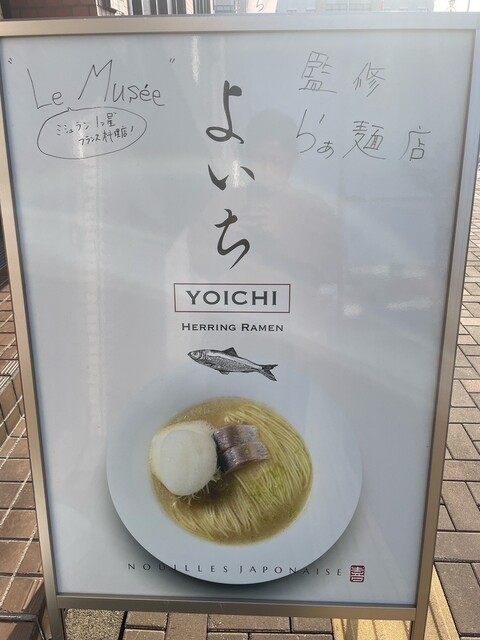 "Le Musée"
ミシュラン1つ星
フランス料理店!
監修
らぁ麺店
よいち
YOICHI
HERRING RAMEN
NOUILLES JAPONAISE